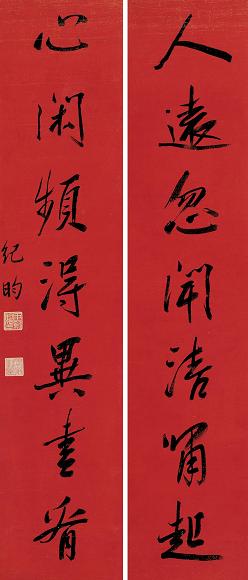 人遠忽聞清嘯起
心閑頻得異書看
紀昀